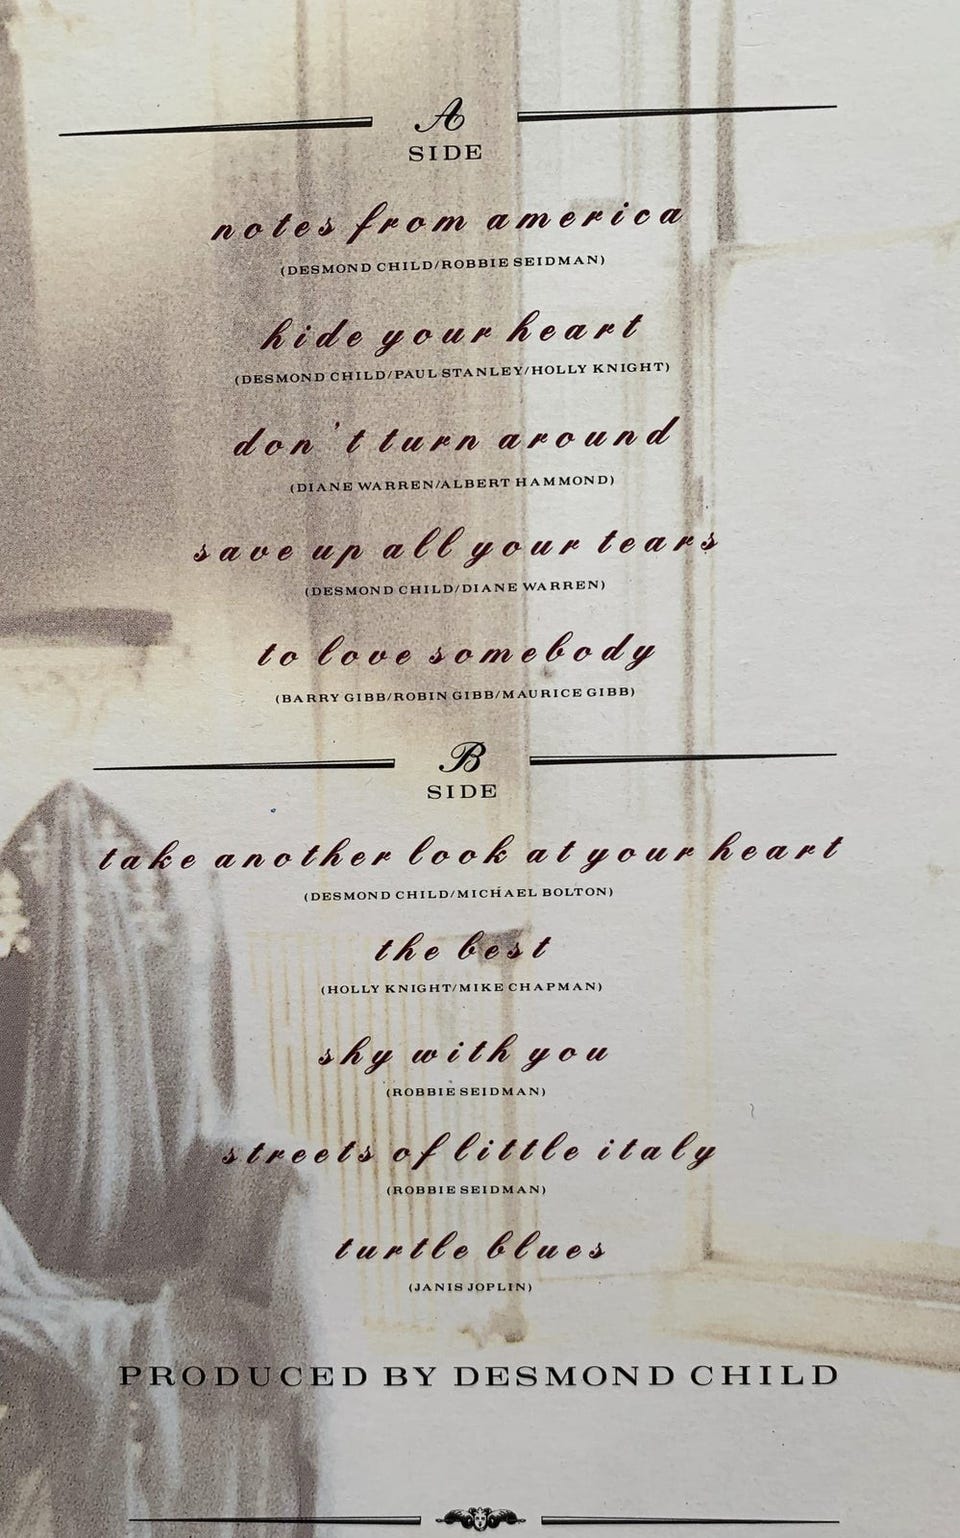 A
SIDE
notes from america
(DESMOND CHILD/ROBBIE SEIDMAN)
hide your heart
(DESMOND CHILD/PAUL STANLEY/HOLLY KNIGHT)
don't turn around
(DIANE WARREN/ALBERT HAMMOND)
save up all your tears
(DESMOND CHILD/DIANE WARREN)
to love somebody
(BARRY GIBB/ROBIN GIBB/MAURICE GIBB)
B
SIDE
take another look at your heart
(DESMOND CHILD/MICHAEL BOLTON)
the best
(HOLLY KNIGHT/MIKE CHAPMAN)
shy with you
(ROBBIE SEIDMAN)
streets of little italy
(ROBBIE SEIDMAN)
turtle blues
(JANIS JOPLIN)
PRODUCED BY DESMOND CHILD